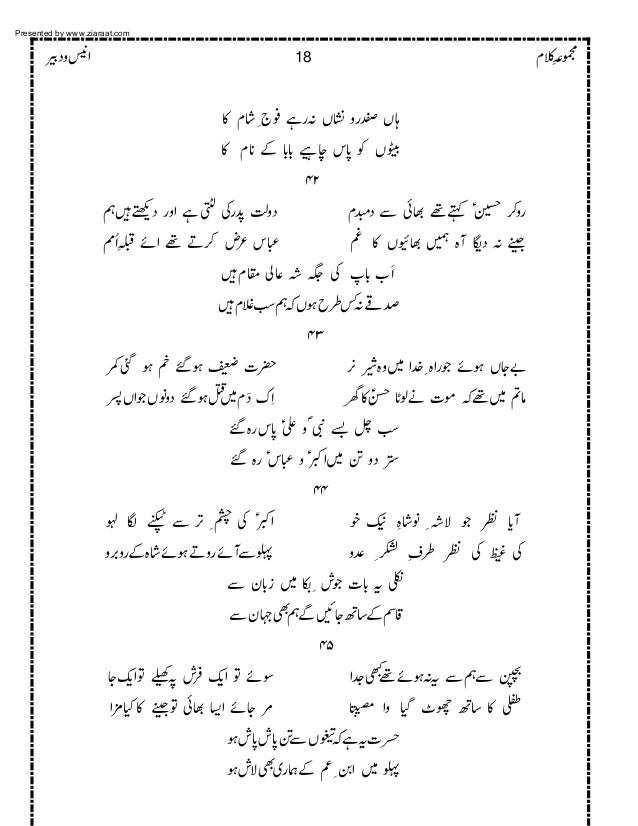 Presented by www.ziaraat.com
مجموعہ کلام 18 انیس و دبیر
ہاں صفدرو نشاں نہ رہے فوجِ شام کا
بیٹوں کو پاس چاہیے بابا کے نام کا
۴۲
روکر حسینؑ کہتے تھے بھائی سے دمبدم دولت پدر کی لٹتی ہے اور دیکھتے ہیں ہم
جینے نہ دیگا آہ ہمیں بھائیوں کا غم عباس عرض کرتے تھے ائے قبلہِ اُمم
اَب باپ کی جگہ شہ عالی مقام ہیں
صدقے نہ کس طرح ہوں کہ ہم سب غلام ہیں
۴۳
بے جاں ہوئے جو راہِ خدا میں وہ شیر نر حضرت ضعیف ہو گئے خم ہو گئی کمر
ماتم میں تھے کہ موت نے لوٹا حسنؑ کا گھر اِک دَم میں قتل ہو گئے دونوں جواں پسر
سب چل بسے نبیؐ و علیؑ پاس رہ گئے
ستر دو تن میں اکبرؑ و عباسؑ رہ گئے
۴۴
آیا نظر جو لاشہِ نوشاہِ نیک خو اکبرؑ کی چشمِ تر سے ٹپکنے لگا لہو
کی غیظ کی نظر طرفِ لشکرِ عدو پہلو سے آئے روتے ہوئے شاہ کے روبرو
نکلی یہ بات جوشِ بکا میں زبان سے
قاسم کے ساتھ جائیں گے ہم بھی جہان سے
۴۵
بچپن سے ہم سے یہ نہ ہوئے تھے کبھی جدا سوئے تو ایک فرش پہ کھیلے تو ایک جا
طفلی کا ساتھ چھوٹ گیا وا مصیبتا مر جائے ایسا بھائی تو جینے کا کیا مزا
حسرت یہ ہے کہ تیغوں سے تن پاش پاش ہو
پہلو میں ابنِ عم کے ہماری بھی لاش ہو